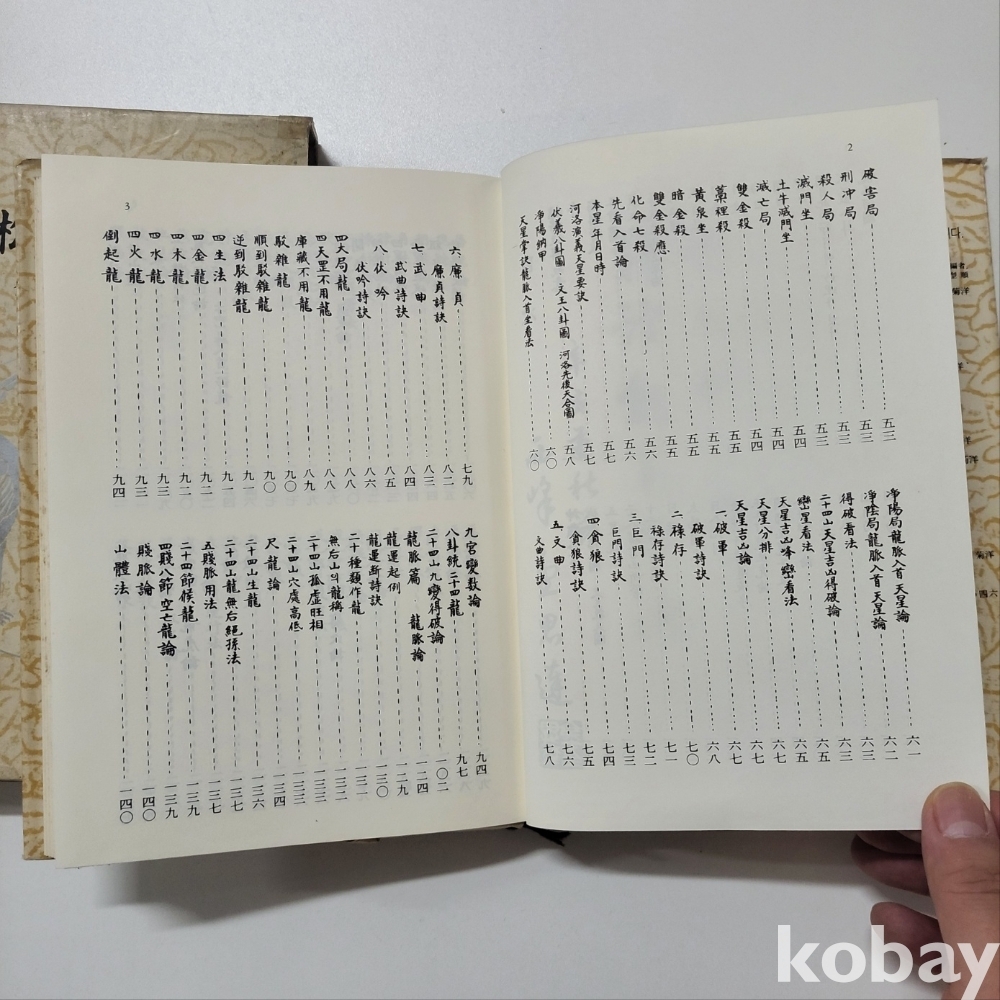 2
破害局 五三
刑冲局 五三
殺人局 五三
滅門坐 五四
土牛滅門坐 五四
滅亡局 五四
雙金殺 五五
藁裡殺 五五
黃泉坐 五五
暗金殺 五五
雙金殺應 五六
化命七殺 五六
先看入首論 五六
本星年月日時 五七
河洛演義天星要訣 五七
伏羲八卦圖 文王八卦圖 河洛先後天合圖 五八
淨陽納甲 六〇
天星掌訣龍脈入首坐看法 六〇
淨陽局龍脈入首天星論 六一
淨陰局龍脈入首天星論 六三
得破看法 六三
二十四山天星吉凶得破論 六五
巒星看法 六五
天星吉凶峰巒看法 六六
天星分排 六七
天星吉凶論 六七
一破軍 六八
破軍詩訣 七〇
二祿存 七一
祿存詩訣 七二
三巨門 七三
巨門詩訣 七四
四貪狼 七五
貪狼詩訣 七六
五文曲 七七
文曲詩訣 七八
3
六廉貞 七九
廉貞詩訣 八二
七武曲 八三
武曲詩訣 八四
八伏吟 八五
伏吟詩訣 八六
四大局龍 八七
四天罡不用龍 八八
庫藏不用龍 八九
駁雜龍 九〇
順到駁雜龍 九〇
逆到駁雜龍 九一
四生法 九一
四金龍 九二
四木龍 九二
四水龍 九三
四火龍 九三
倒起龍 九四
九宮變數論 九四
八卦統二十四龍 九七
二十四山九變得破論 一〇二
龍脈篇 龍脈論 一二四
龍運起例 一二九
龍運斷詩訣 一三〇
二十種類作龍 一三二
無后山의龍稱 一三二
二十四山孤虛旺相 一三三
二十四山穴處高低 一三三
尺龍論 一三四
二十四山生龍 一三六
二十四山龍無后絕孫法 一三七
五賤脈用法 一三七
二十四節候龍 一三九
四賤八節空亡龍論 一三九
賤脈論 一四〇
山體法 一四〇
kobay